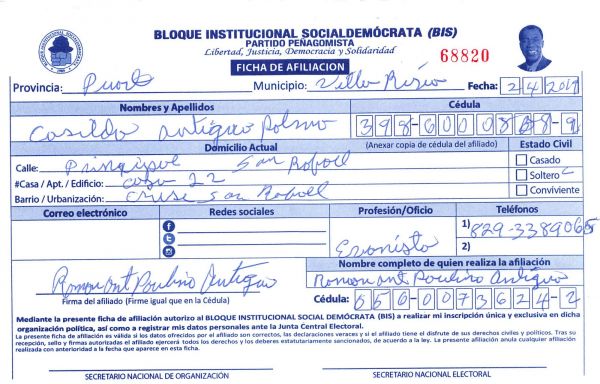 BLOQUE INSTITUCIONAL SOCIALDEMÓCRATA (BIS)
PARTIDO PEÑAGOMISTA
Libertad, Justicia, Democracia y Solidaridad
68820
FICHA DE AFILIACION
Provincia: Municipio: Villa Fecha: 2/4/2019
Nombres y Apellidos Cédula
Casildo Antigua
Domicilio Actual (Anexar copia de cédula del afiliado) Estado Civil
Calle: San Rafael Casado
#Casa / Apt. / Edificio: casa 22 Soltero
Barrio / Urbanización: cruse San Rafael Conviviente
Correo electrónico Redes sociales Profesión/Oficio Teléfonos
1) 829-3389065
2)
Nombre completo de quien realiza la afiliación
Paulino Antigua Paulino Antigua
Firma del afiliado (Firme igual que en la Cédula) Cédula: 056-0073624-2
Mediante la presente ficha de afiliación autorizo al BLOQUE INSTITUCIONAL SOCIAL DEMÓCRATA (BIS) a realizar mi inscripción única y exclusiva en dicha
organización política, así como a registrar mis datos personales ante la Junta Central Electoral.
La presente ficha de afiliación es válida si los datos ofrecidos por el afiliado son correctos, las declaraciones veraces y si el afiliado tiene el disfrute de sus derechos civiles y políticos. Tras su
recepción, sello y firmas autorizadas el afiliado ejercerá todos los derechos y los deberes estatutariamente sancionados, de acuerdo a la ley. La presente afiliación anula cualquier afiliación
realizada con anterioridad a la fecha que aparece en esta ficha.
SECRETARIO NACIONAL DE ORGANIZACIÓN SECRETARIO NACIONAL ELECTORAL